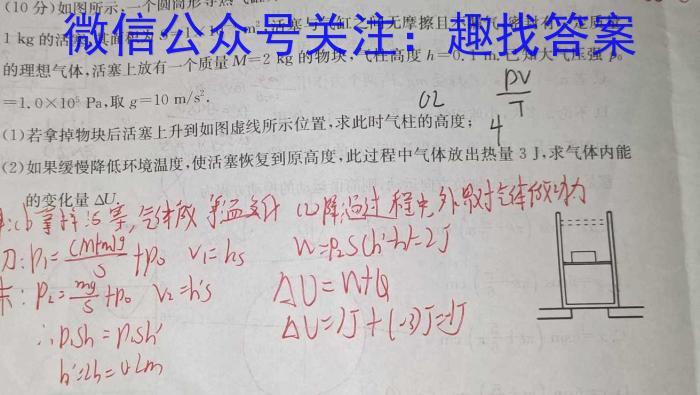 (10分)如图所示,一个圆筒形导热气
1 kg的活 面积 S=1 m² 活塞与气缸之间无摩擦且不 气,密封有 质量
微信公众号关注：趣找答案
的理想气体,活塞上放有一个质量M=2 kg的物块,气柱高度h=0.1 m,已知大气压强p₀
=1.0×10⁵ Pa,取g=10 m/s².
PV
T
02
(1)若拿掉物块后活塞上升到如图虚线所示位置,求此时气柱的高度;
4
(2)如果缓慢降低环境温度,使活塞恢复到原高度,此过程中气体放出热量3 J,求气体内能
的变化量ΔU.
气体做等温变化
(2)降温过程中,外界对气体做功为
P₁=(M+m)g/S+P₀ V₁=hS
W=P₂S(h'-h)=2J
P₂=mg/S+P₀ V₂=h'S
ΔU=W+Q
∴P₁Sh=P₂Sh'
ΔU=2J+(-3)J=-1J
h'=2h=0.2m